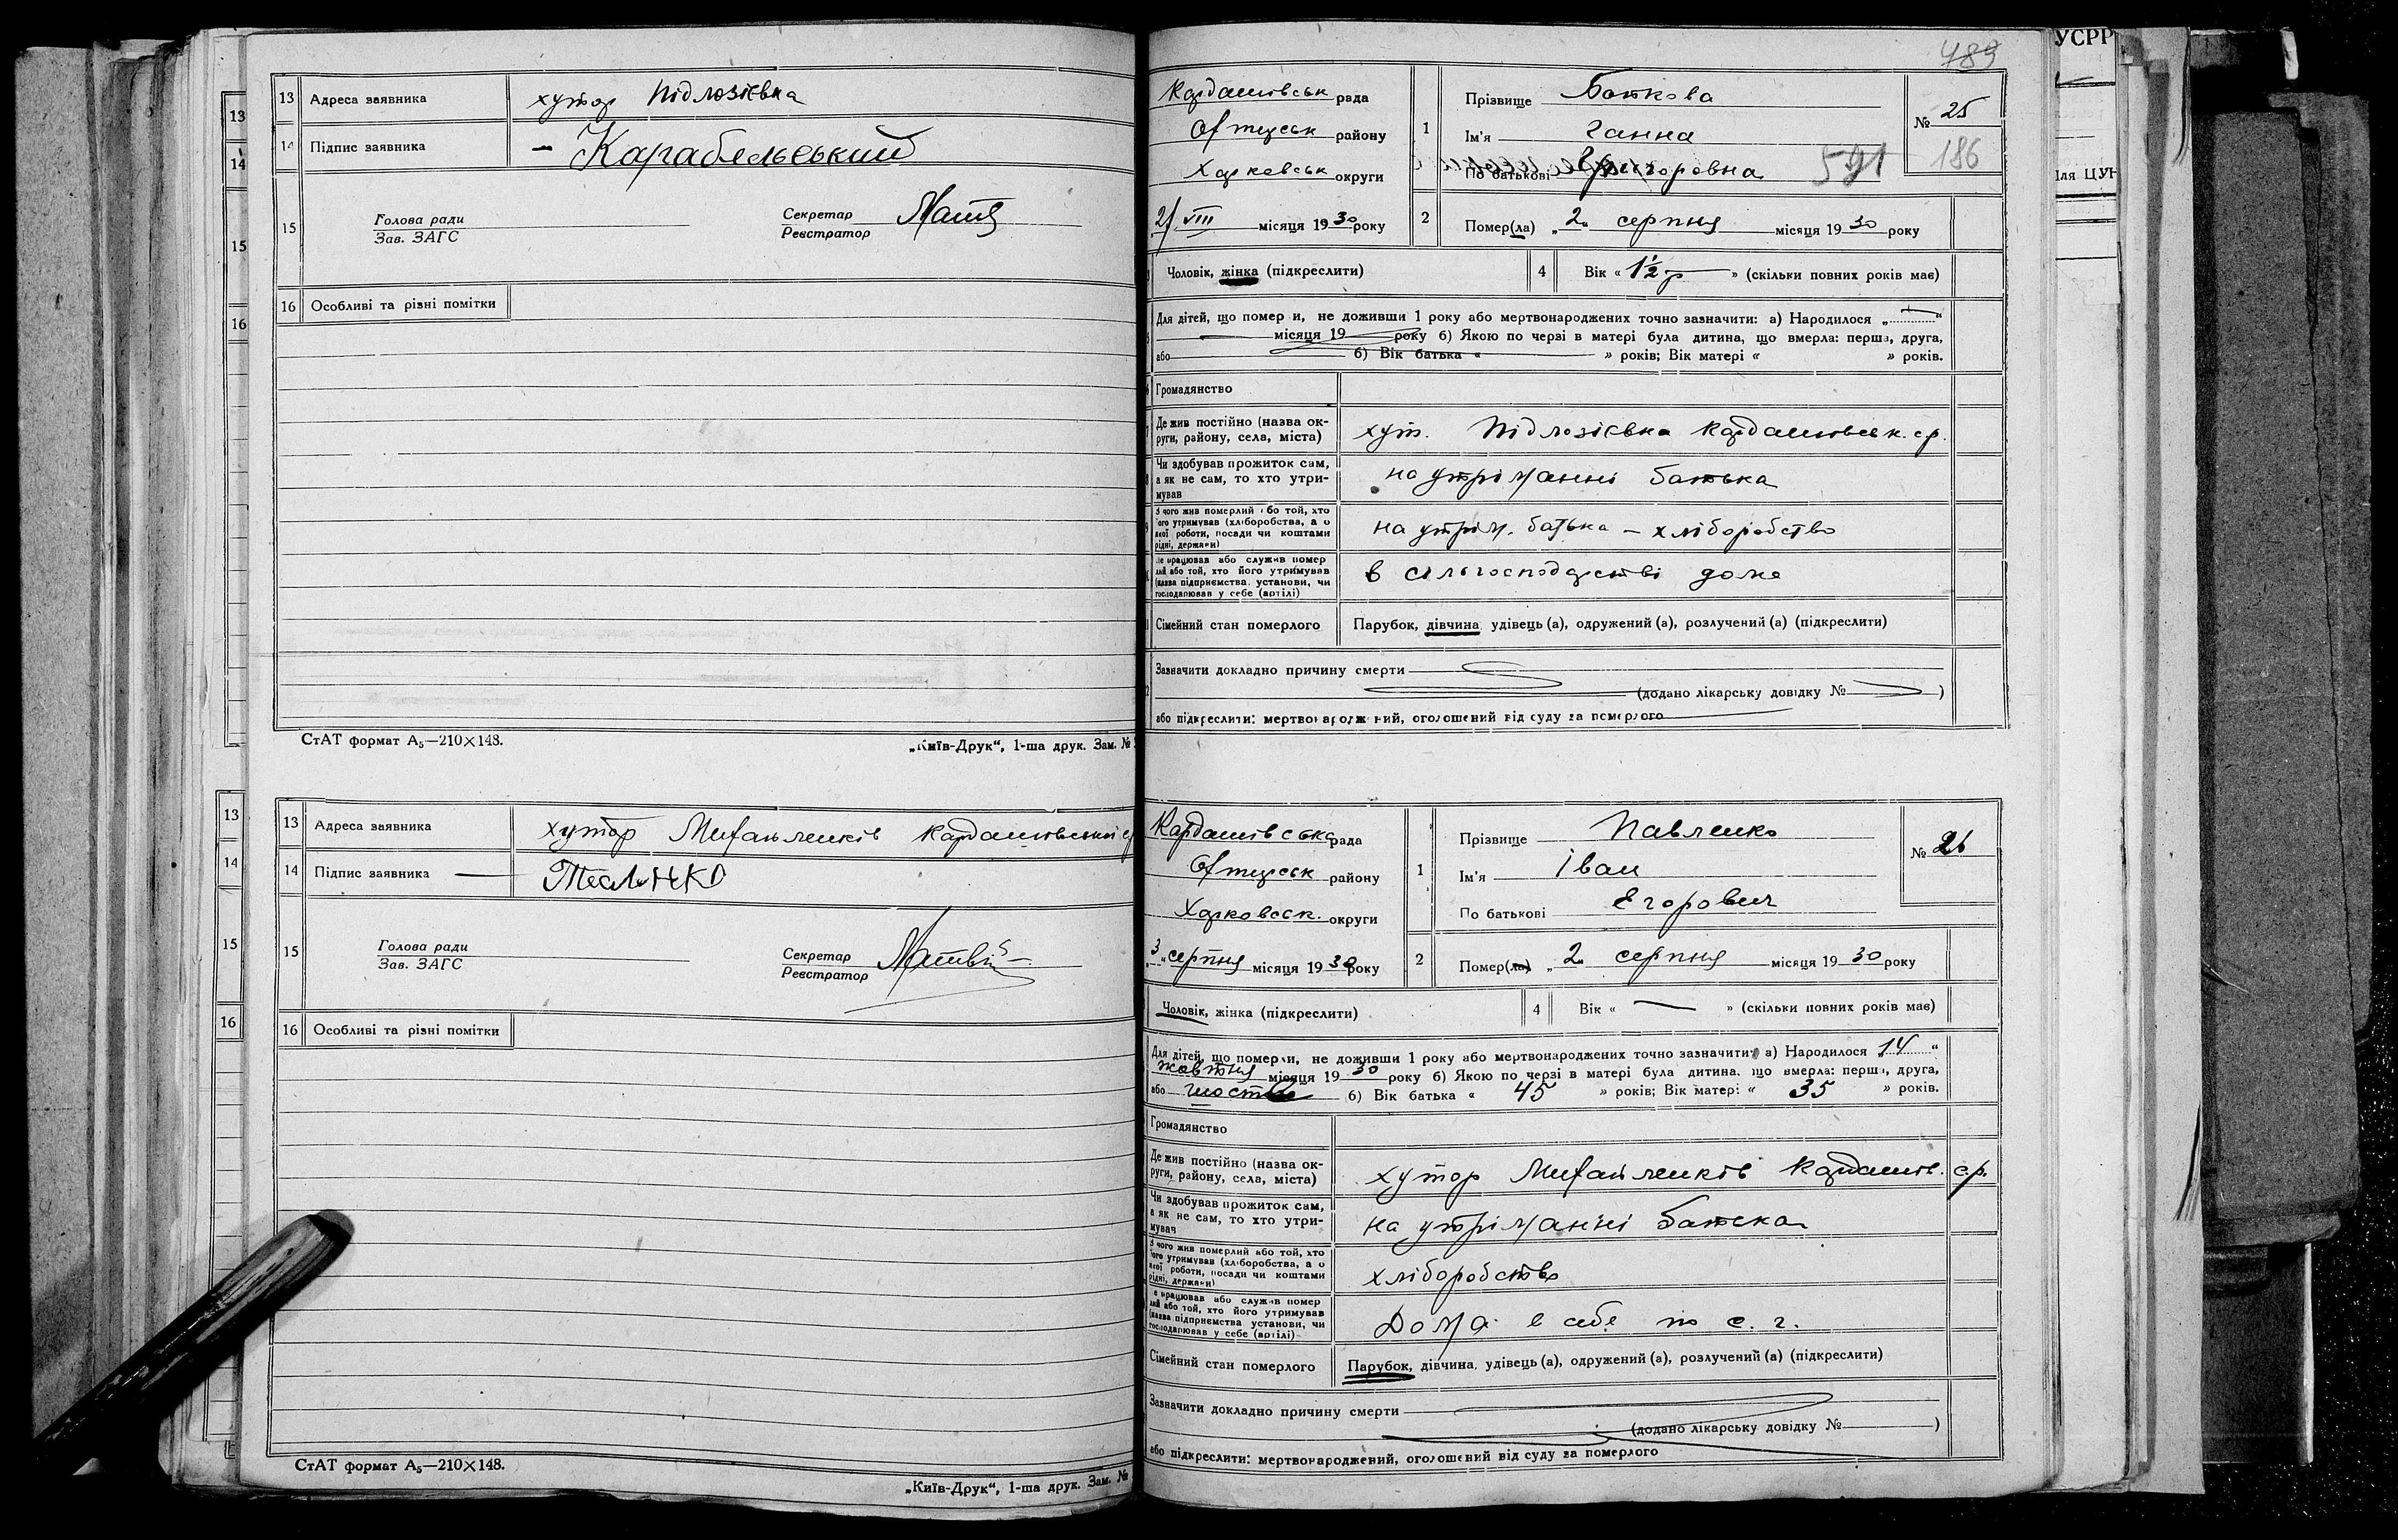 УСРР
13
14
15
16
Для ЦУН
13 Адреса заявника хутор Підлозієвка
14 Підпис заявника – Карабельський
15 Голова ради
Зав. ЗАГС
Секретар
Реєстратор
16 Особливі та різні помітки
СтАТ формат А₅—210×148.
„Київ-Друк“, 1-ша друк. Зам. №
13
14
15
16
13 Адреса заявника хутор Михайленків Кардашовської с
14 Підпис заявника
15 Голова ради
Зав. ЗАГС
Секретар
Реєстратор
16 Особливі та різні помітки
СтАТ формат А₅—210×148.
„Київ-Друк“, 1-ша друк. Зам. №
489
Кардашовськ рада
Охтирськ району
Харковськ округи
1 Прізвище Боткова
Ім'я Ганна
По батькові Григоровна 591
№ 25
186
VIII місяця 1930 року
2 Помер(ла) „2“ серпня місяця 1930 року
Чоловік, жінка (підкреслити)
4 Вік « 1½ р » (скільки повних років має)
Для дітей, що померли, не доживши 1 року або мертвонароджених точно зазначити: а) Народилося „ “
місяця 19 року б) Якою по черзі в матері була дитина, що вмерла: перша, друга,
або б) Вік батька « » років; Вік матері « » років.
Громадянство
Де жив постійно (назва округи, району, села, міста) хут. Підлозієвка Кардашовськ. ср.
Чи здобував прожиток сам,
а як не сам, то хто утримував
на утріманні батька
З чого жив померлий або той, хто
його утримував (хліборобства, а о
якої роботи, посади чи коштами
рідні, держави)
на утрім. батька – хліборобство
Де працював або служив помер
лий або той, хто його утримував
(назва підприємства, установи, чи
господарював у себе (артілі)
в сільгосподарстві дома
Сімейний стан померлого Парубок, дівчина, удівець (а), одружений (а), розлучений (а) (підкреслити)
Зазначити докладно причину смерти
(додано лікарську довідку № )
або підкреслити: мертвонароджений, оголошений від суду за померлого
Кардашовська рада
Охтирськ району
Харковськ. округи
1 Прізвище Павленко
Ім'я Іван
По батькові Егорович
№ 26
„3“ серпня місяця 1930 року
2 Помер(ла) „2“ серпня місяця 1930 року
Чоловік, жінка (підкреслити)
4 Вік « — » (скільки повних років має)
Для дітей, що померли, не доживши 1 року або мертвонароджених точно зазначити: а) Народилося „14“
жовтня місяця 1930 року б) Якою по черзі в матері була дитина, що вмерла: перша, друга,
або б) Вік батька « 45 » років; Вік матері « 35 » років.
Громадянство
Де жив постійно (назва округи, району, села, міста) хутор Михайленків Кардашов. с.р.
Чи здобував прожиток сам,
а як не сам, то хто утримував
на утріманні батька
З чого жив померлий або той, хто
його утримував (хліборобства, а о
якої роботи, посади чи коштами
рідні, держави)
хліборобство
Де працював або служив помер
лий або той, хто його утримував
(назва підприємства установи, чи
господарював у себе (артілі)
Дома в себе по с. г.
Сімейний стан померлого Парубок, дівчина, удівець (а), одружений (а), розлучений (а) (підкреслити)
Зазначити докладно причину смерти
(додано лікарську довідку № )
або підкреслити: мертвонароджений, оголошений від суду за померлого